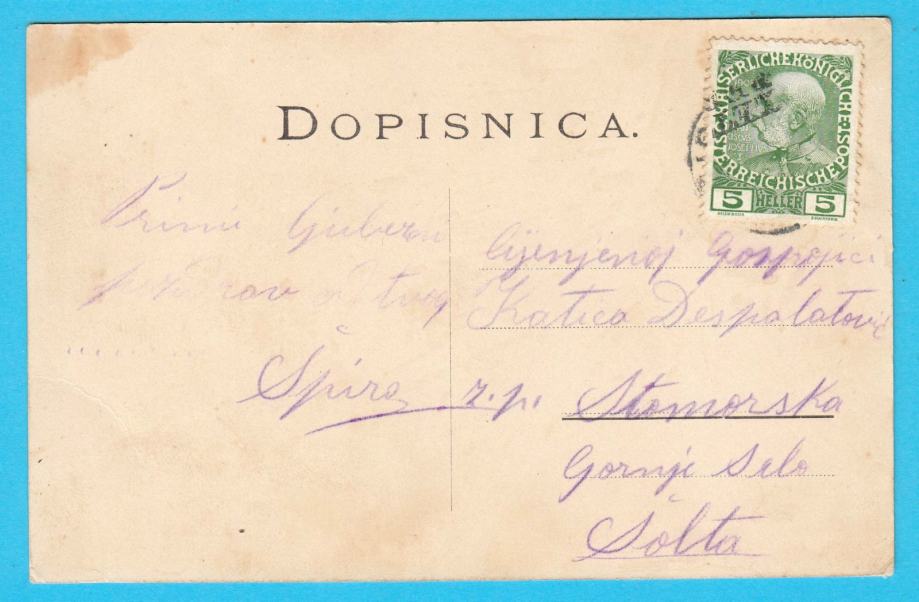 DOPISNICA.
KAISERLICHE KÖNIGLICHE
ÖSTERREICHISCHE POST
5 HELLER 5
Primi
pozdrav od tvog
..........
Špiro
Cijenjenoj Gospojici
Katica Despalatović
z.p. Stomorska
Gornje Selo
Šolta